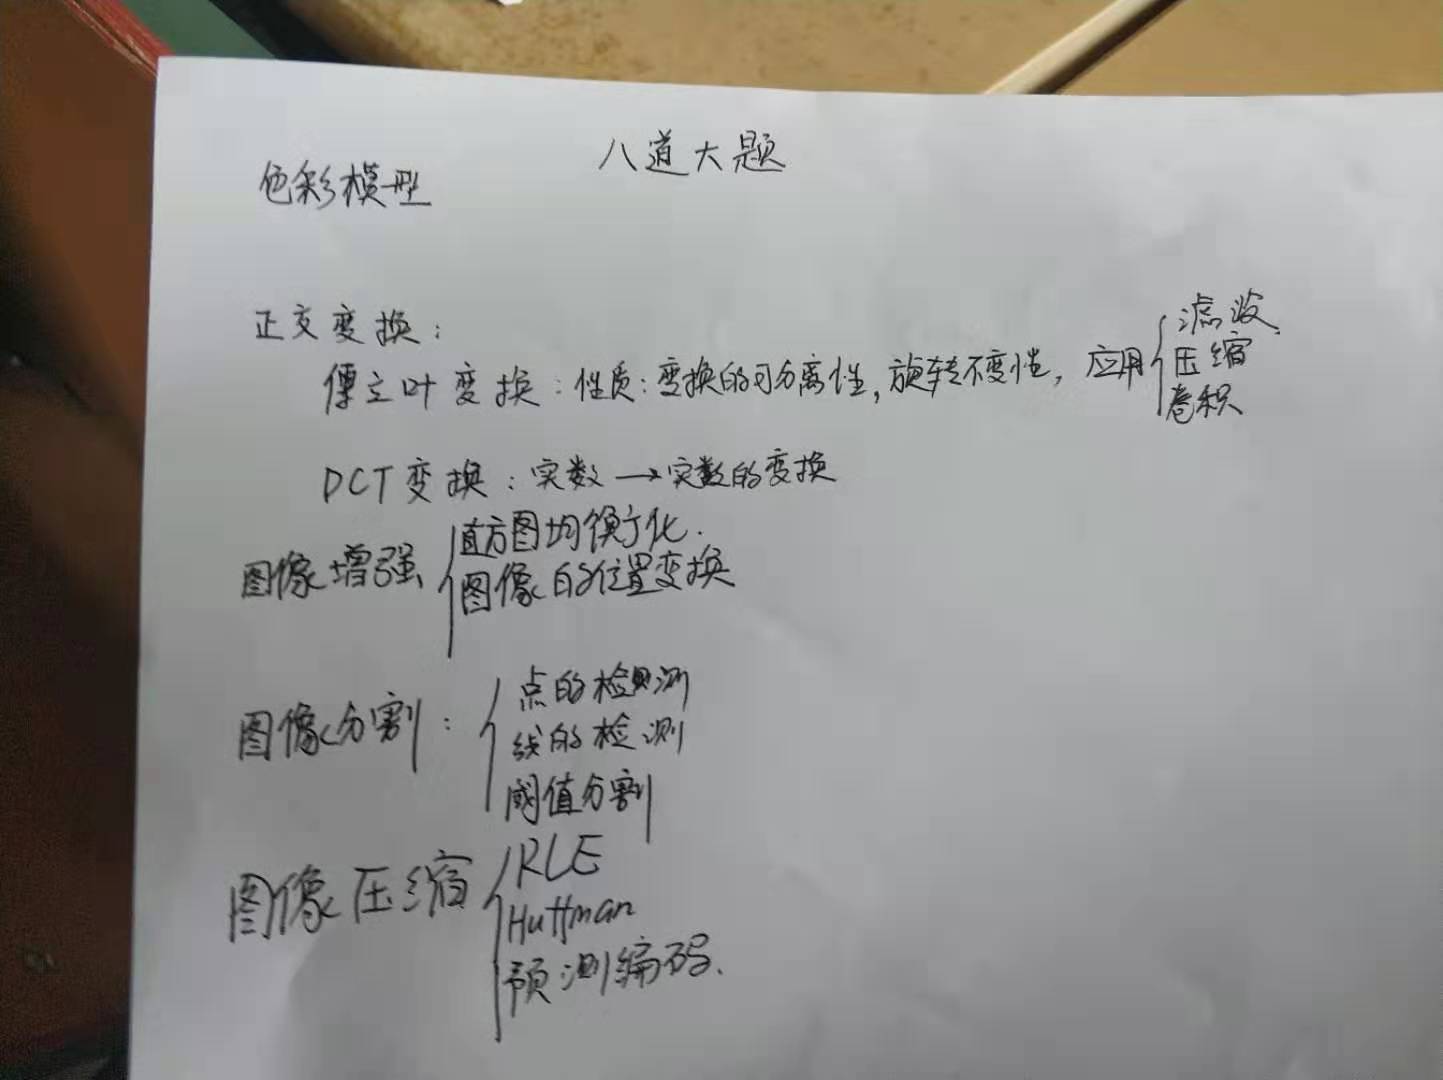 八道大题
色彩模型
正交变换：
傅立叶变换：性质：变换的可分离性，旋转不变性，应用
滤波
压缩
卷积
DCT变换：实数→实数的变换
图像增强
直方图均衡化.
图像的位置变换
图像分割：
点的检测
线的检测
阈值分割
图像压缩
RLE
Huffman
预测编码.